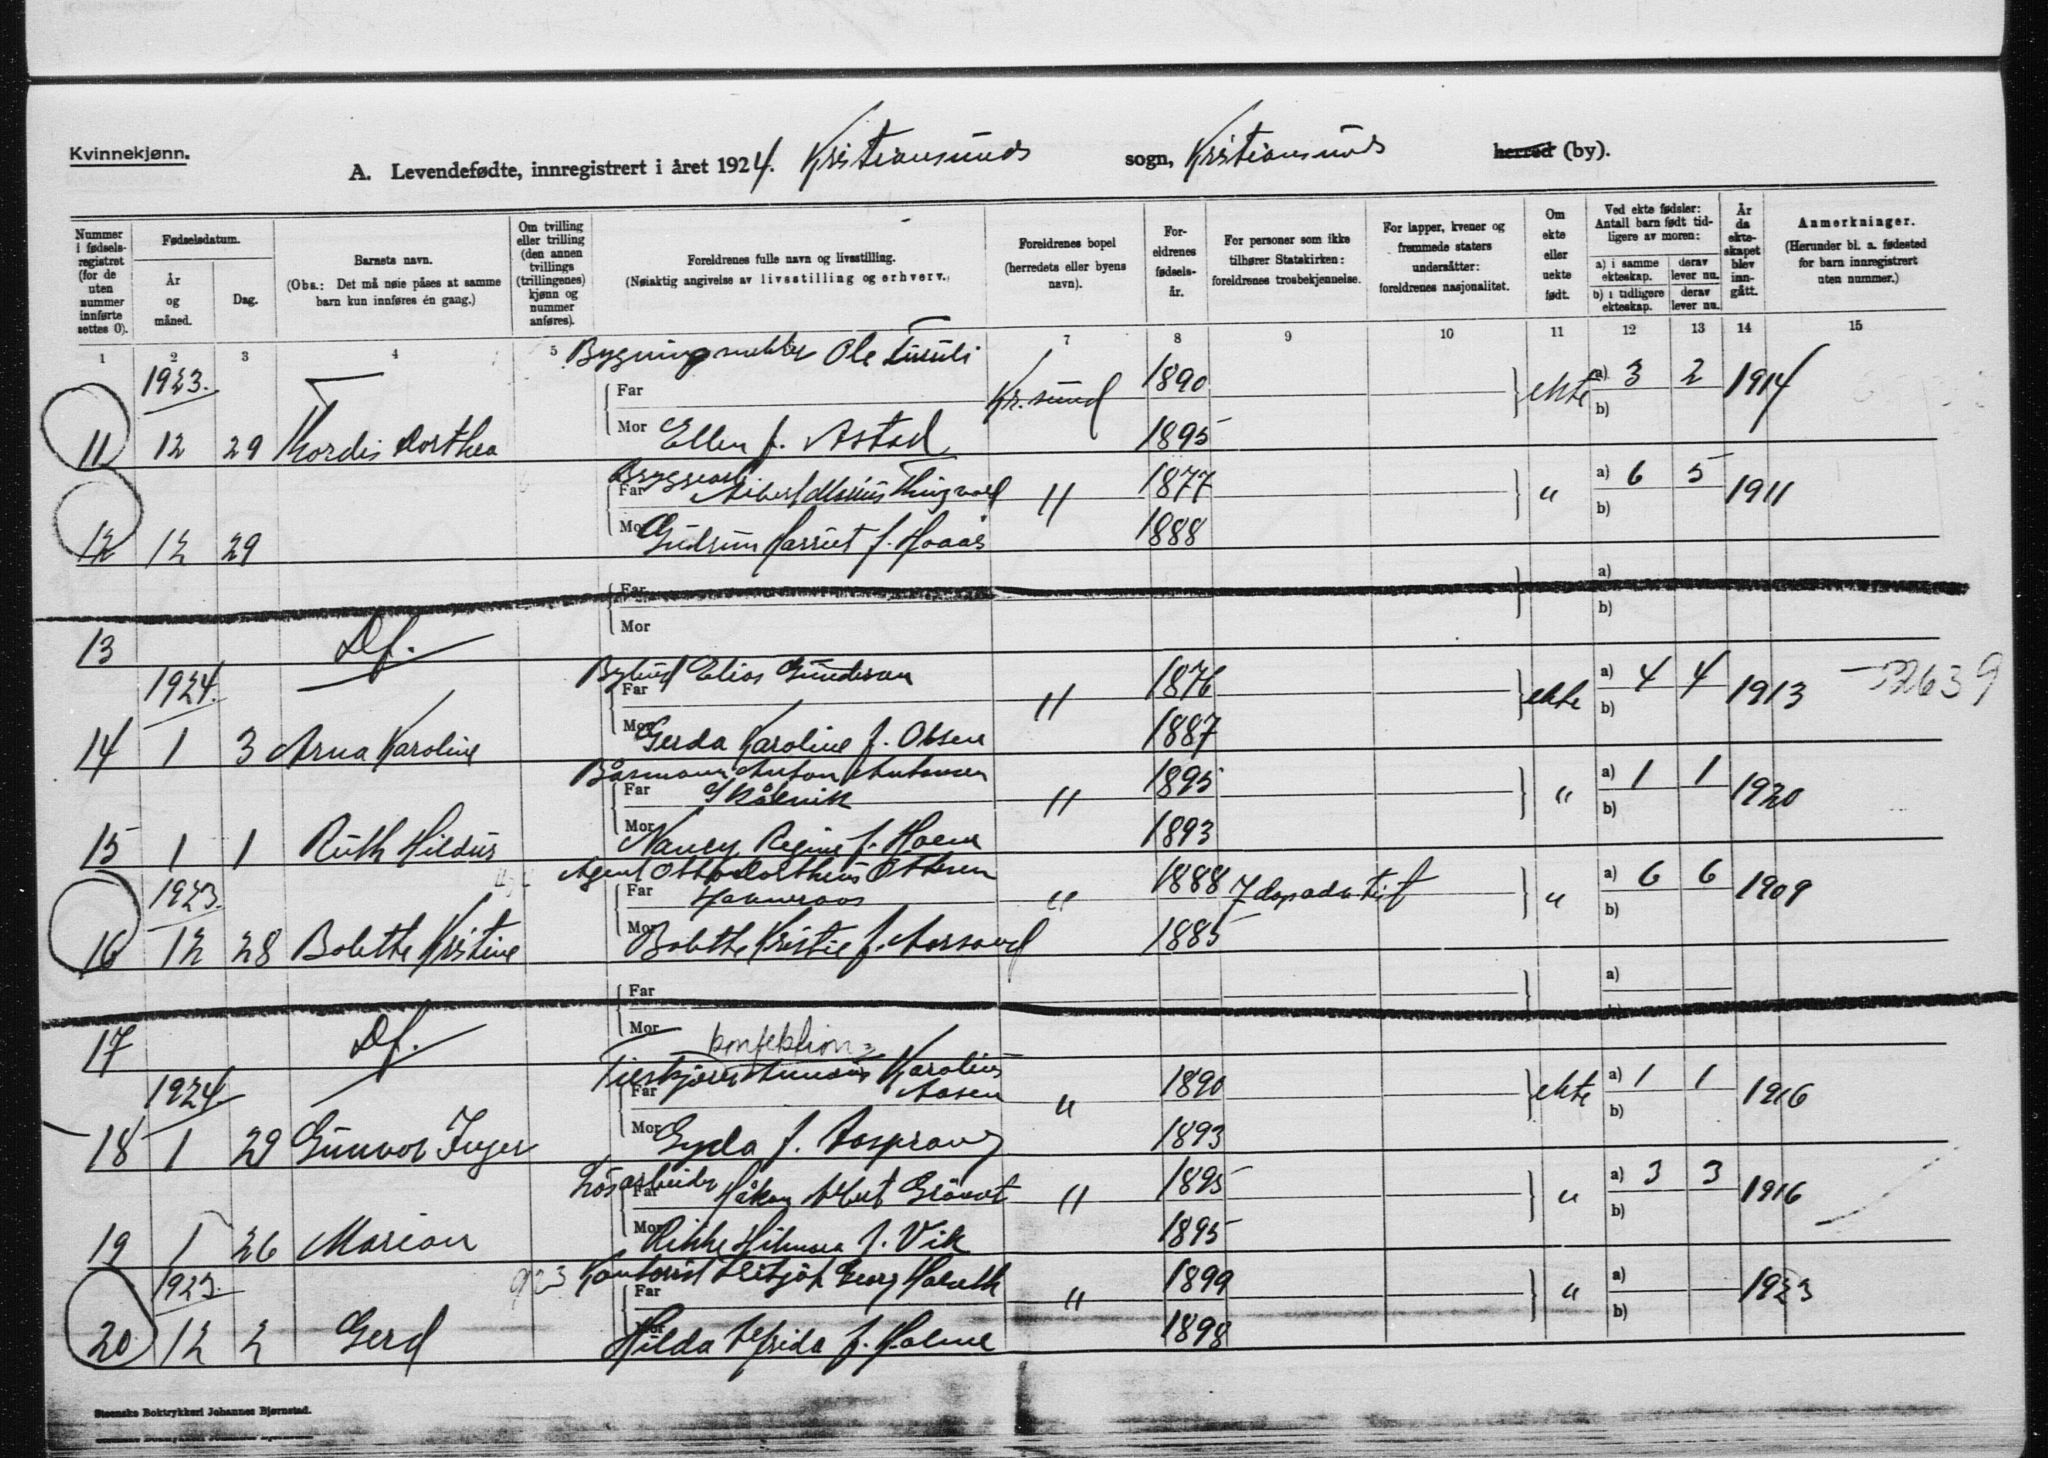 Kvinnekjønn.
A. Levendefødte, innregistrert i året 1924. Kristiansunds sogn, Kristiansunds herred (by).
Nummer i fødselsregistret (for de uten nummer innførte settes 0).
Fødselsdatum.
År og måned.
Dag.
Barnets navn.
(Obs.: Det må nøie påses at samme barn kun innføres én gang.)
Om tvilling eller trilling (den annen tvillings (trillingenes) kjønn og nummer anføres).
Foreldrenes fulle navn og livsstilling.
(Nøiaktig angivelse av livsstilling og erhverv.)
Foreldrenes bopel (herredets eller byens navn).
Foreldrenes fødselsår.
For personer som ikke tilhører Statskirken: foreldrenes trosbekjennelse.
For lapper, kvener og fremmede staters undersåtter: foreldrenes nasjonalitet.
Om ekte eller uekte født.
Ved ekte fødsler: Antall barn født tidligere av moren:
a) i samme ekteskap. derav lever nu.
b) i tidligere ekteskap. derav lever nu.
År da ekteskapet blev inngått.
Anmerkninger.
(Herunder bl. a. fødested for barn innregistrert uten nummer.)
1 2 3 4 5 7 8 9 10 11 12 13 14 15
1923.
Ole
Far Kr.sund 1890 ekte a) 3 2 1914
b)
11 12 29 Hordis Dorthea Mor Ellen f. Astad 1895
Far Thingvold " 1877 " a) 6 5 1911
b)
12 12 29 Mor Gudrun Harriet f. Hoaas 1888
Far a)
b)
13 Df. Mor
1924.
Elias Gundersen
Far " 1876 ekte a) 4 4 1913
b)
14 1 3 Arna Karoline Mor Gerda Karoline f. Olsen 1887
Anton Antonsen
Far " 1895 " a) 1 1 1920
b)
15 1 1 Ruth Hildur Mor Nancy Regine f. 1893
1923.
Agent Otto Ottesen
Far " 1888 7 dags adventist " a) 6 6 1909
b)
16 12 28 Bolette Kristine Mor f. 1885
Far a)
17 Df. Mor
konfektion
1924
Karolius
Far Aasen " 1890 ekte a) 1 1 1916
b)
18 1 29 Gunvor Inger Mor Gyda f. 1893
Løsarbeider
Far Håkon " 1895 " a) 3 3 1916
b)
19 1 26 Marion Mor Rikke f. Vik 1895
1923.
923 Kontorist Georg
Far " 1899 " a) 1923
b)
20 12 2 Gerd Mor Hilda f. Holme 1898
Steenske Boktrykkeri Johannes Bjørnstad.